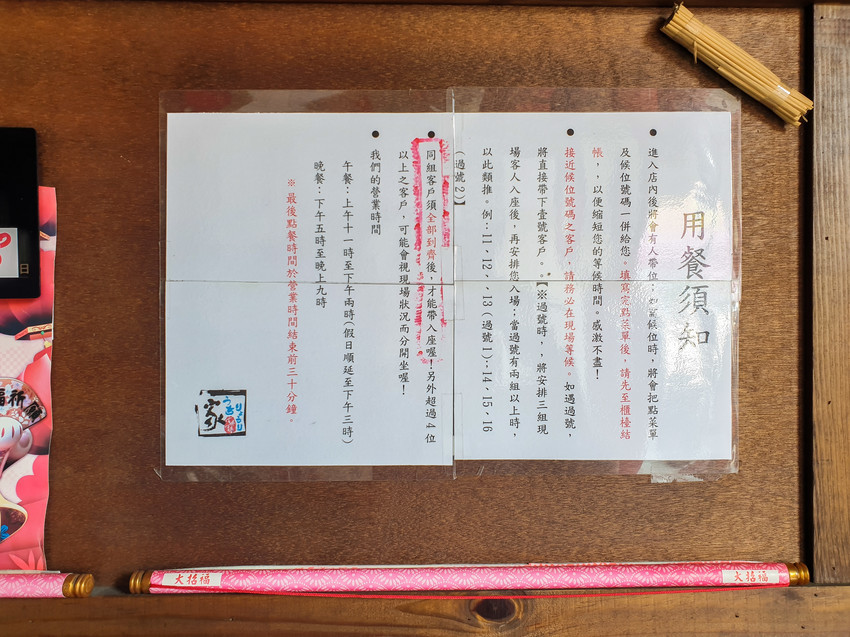 用餐須知
●進入店內後將會有人帶位；如需候位時，將會把點菜單
及候位號碼一併給您。填寫完點菜單後，請先至櫃檯結
帳，，以便縮短您的等候時間。感激不盡！
●接近候位號碼之客戶，請務必在現場等候。如遇過號，
將直接帶下壹號客戶。。【※過號時，，將安排三組現
場客人入座後，再安排您入場；當過號有兩組以上時，
以此類推。例：11、12、、13（過號1）、14、15、16
（過號2）】
●同組客戶須全部到齊後，才能帶入座喔！另外超過4位
以上之客戶，可能會視現場狀況而分開坐喔！
●我們的營業時間
午餐：上午十一時至下午兩時（假日順延至下午三時）
晚餐：下午五時至晚上九時
※最後點餐時間於營業時間結束前三十分鐘。
家
日
福祈
大招福
大招福